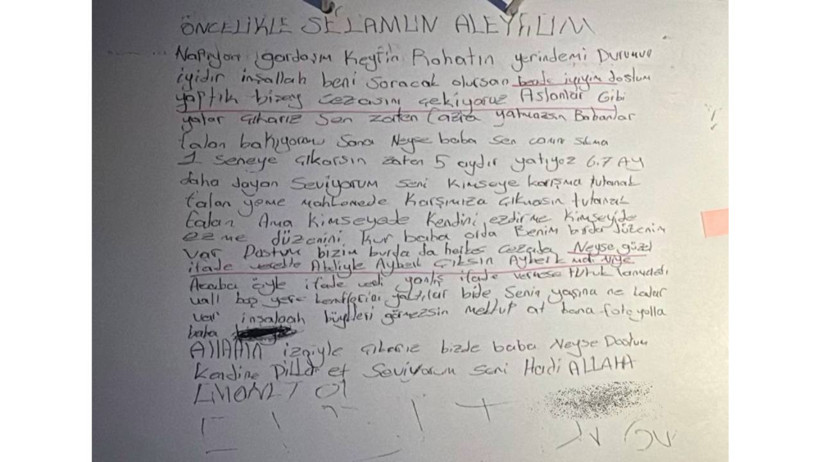 ÖNCELİKLE SELAMUN ALEYKÜM
Napıyon gardaşım Keyfin Rahatın yerindemi Durumun
iyidir inşallah beni Soracak olursan bende iyiyim dostum
yaptık bizeng Cezasını çekiyoruz Aslanlar Gibi
yatar çıkarız Sen zaten fazla yatmazsın Babanlar
falan bakıyorum Sana Neyse baba Sen canını sıkma
1 Seneye çıkarsın zaten 5 aydır yatıyoz 6.7 Ay
daha dayan Seviyorum seni Kimseye karışma tutanak
falan yeme mahkemede karşımıza çıkmasın tutanak
falan Ama kimseyede kendini ezdirme kimseyide
ezme düzenini kur baba olda Benim burda düzenim
var Dostum bizim burda da herkes Neyse güzel
ifade Abiyle Ayberk çıksın Ayberk niye
Acaba öyle ifade verdi yanlış ifade vermese tutuk
vall boş yere bide Senin yaşına ne kadar
ver inşalaah görmezsin mektup at bana foto yolla
baba
ALLAHIN izniyle çıkarız bizde baba Neyse Dostum
Kendine Dikkat et Seviyorum Seni Hadi ALLAHA
EMANET Ol